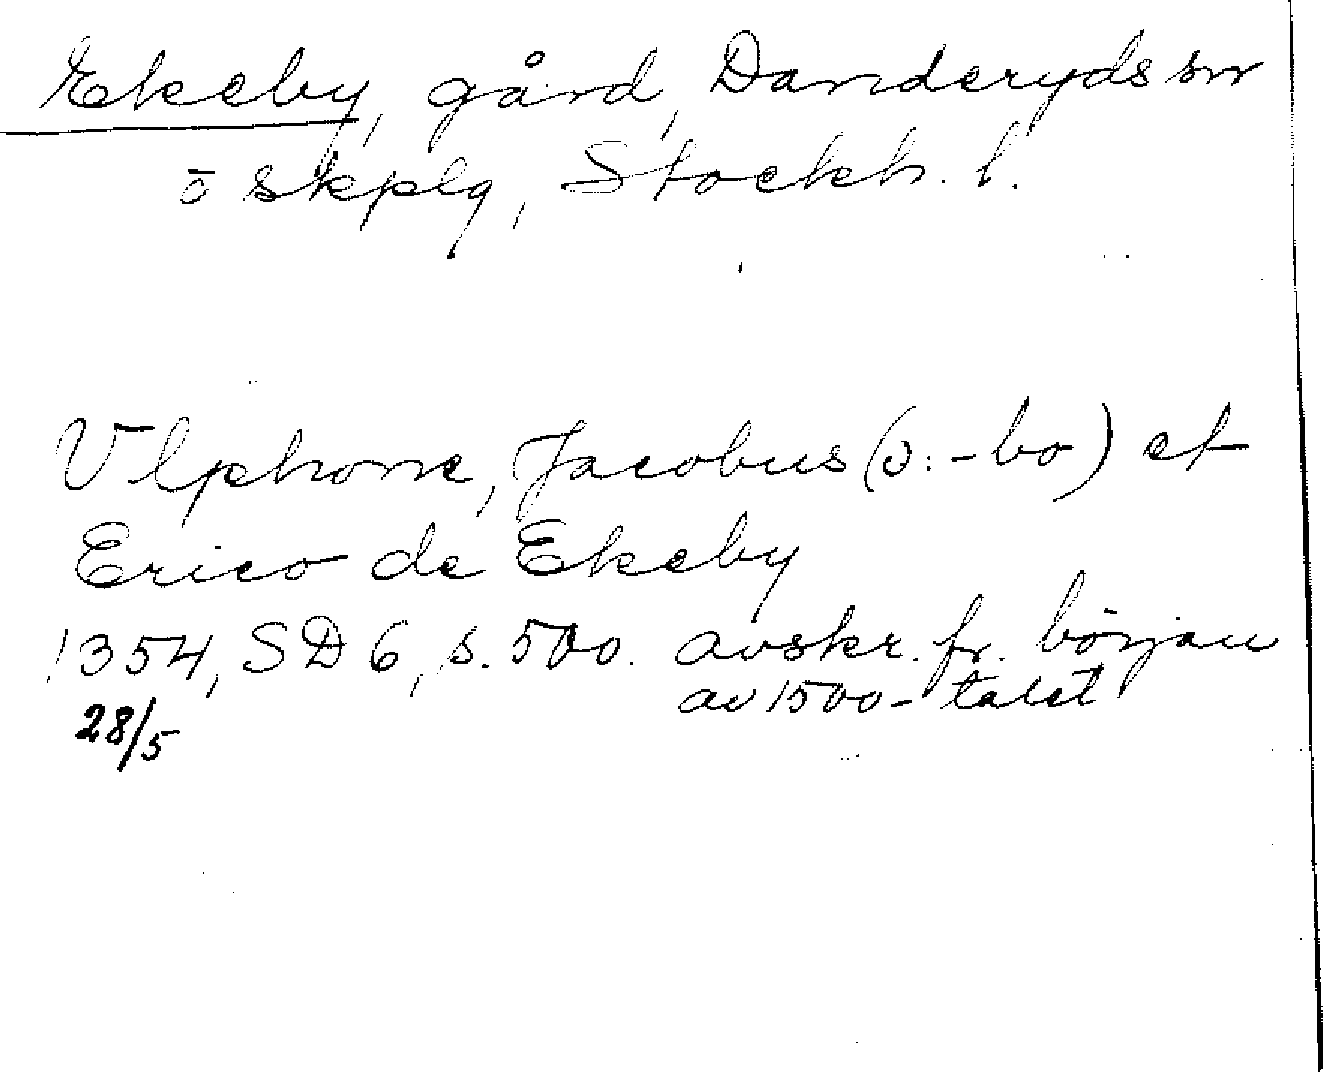 Ekeby, gård, Danderyds sn
o skplg, Stockh. l.
Vlphone, Jacobus (o: -bo) et
Erico de Ekeby
1354, SD 6, s. 500. avskr. fr. början
28/5
av 1500-talet